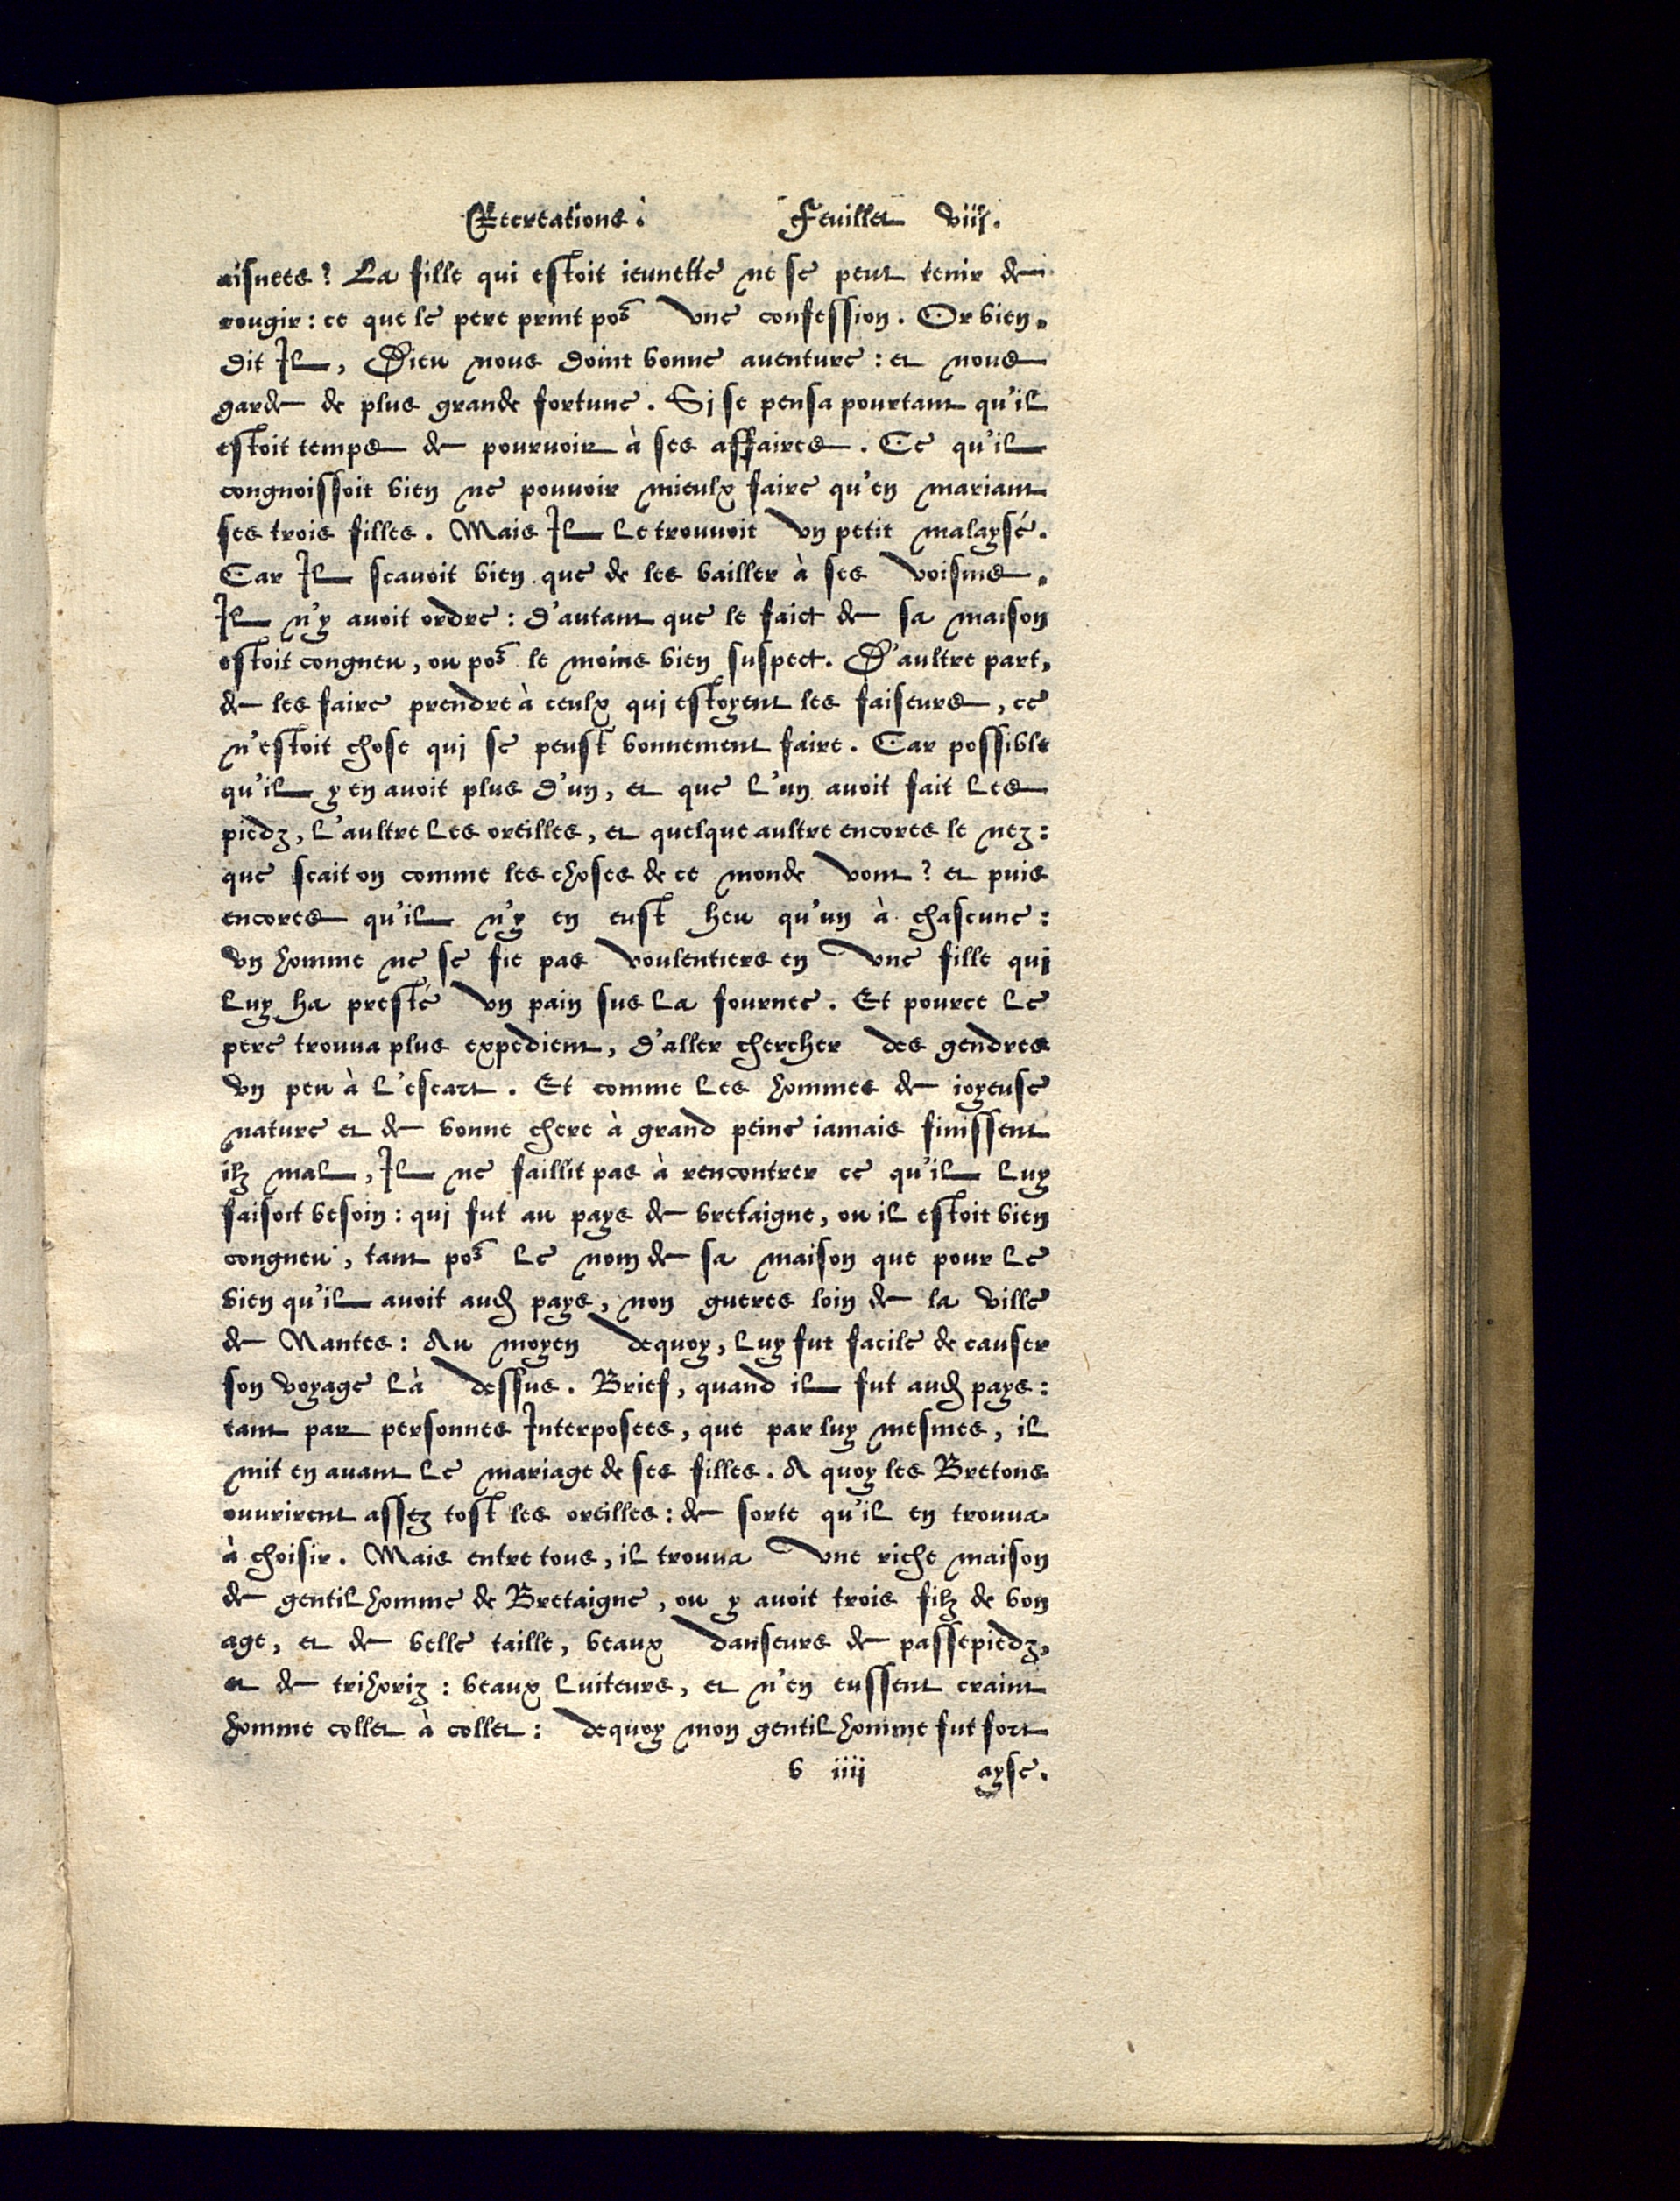 Recreations. Feuillet viij.
aisnees? La fille qui estoit ieunette ne se peut tenir de
rougir: ce que le pere print poͬ vne confession. Or bien,
dit Il, Dieu nous doint bonne auenture: et nous
garde de plus grande fortune. Sj se pensa pourtant qu'il
estoit temps de pouruoir à ses affaires. Ce qu'il
congnoissoit bien ne pouuoir mieulx faire qu'en mariant
ses trois filles. Mais Il le trouuoit vn petit malaysé.
Car Il scauoit bien que de les bailler à ses voisins,
Il n'y auoit ordre: d'autant que le faict de sa maison
estoit congneu, ou poͬ le moins bien suspect. D'aultre part,
de les faire prendre à ceulx quj estoyent les faiseurs, ce
n'estoit chose quj se peust bonnement faire. Car possible
qu'il y en auoit plus d'un, et que l'un auoit fait les
piedz, l'aultre les oreilles, et quelque aultre encores le nez:
que scait on comme les choses de ce monde vont? et puis
encores qu'il n'y en eust heu qu'un à chascune:
vn homme ne se fie pas voulentiers en vne fille quj
luy ha presté vn pain sus la fournee. Et pource le
pere trouua plus expedient, d'aller chercher des gendres
vn peu à l'escart. Et comme les hommes de ioyeuse
nature et de bonne chere à grand peine iamais finissent
ilz mal, Il ne faillit pas à rencontrer ce qu'il luy
faisoit besoin: quj fut au pays de bretaigne, ou il estoit bien
congneu, tant poͬ le nom de sa maison que pour le
bien qu'il auoit aud pays, non gueres loin de la ville
de Nantes: Au moyen dequoy, luy fut facile de causer
son voyage là dessus. Brief, quand il fut aud pays:
tant par personnes Interposees, que par luy mesmes, il
mit en auant le mariage de ses filles. A quoy les Bretons
ouurirent assez tost les oreilles: de sorte qu'il en trouua
à choisir. Mais entre tous, il trouua vne riche maison
de gentilhomme de Bretaigne, ou y auoit trois filz de bon
age, et de belle taille, beaux danseurs de passepiedz,
et de trihoriz: beaux luiteurs, et n'en eussent craint
homme collet à collet: dequoy mon gentilhomme fut fort
b iiij ayse.